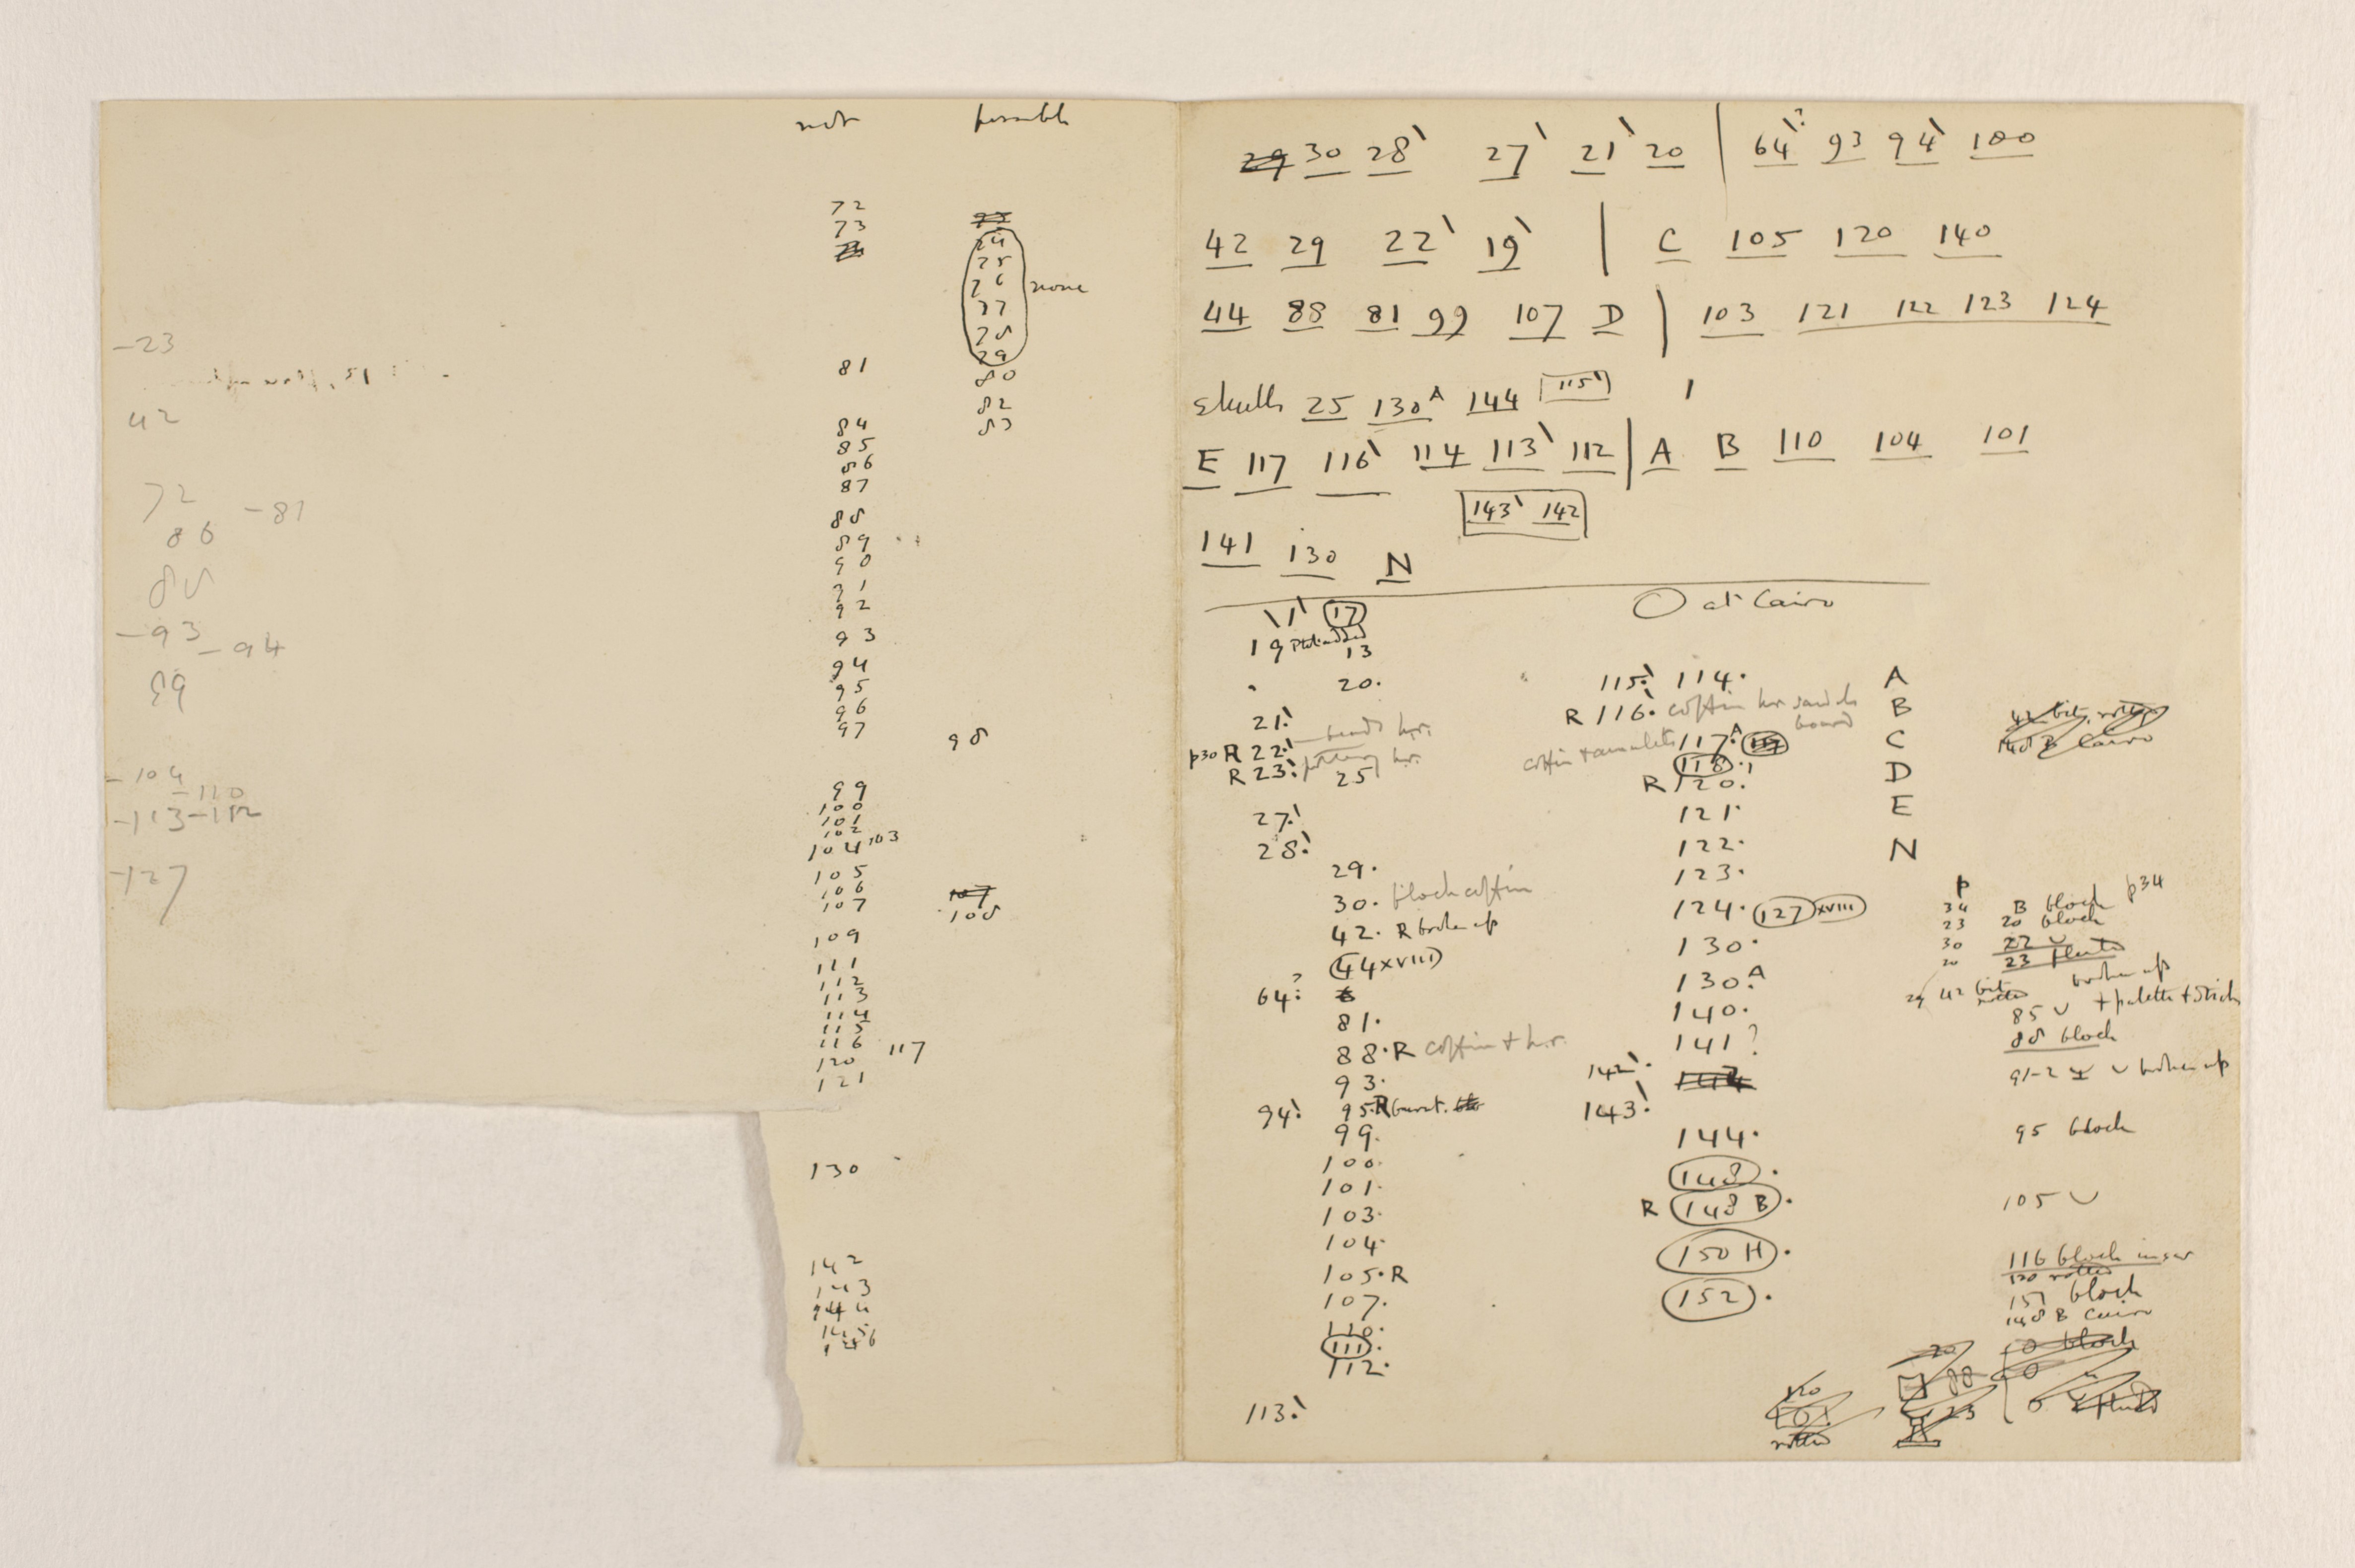 not possible
72
73
74
75
76 none
77
78
79
81
80
82
84 83
85
86
87
88
89
90
91
92
93
94
95
96
97
98
99
100
101
102
104 103
105
106
107 107
108
109
111
112
113
114
115
116
117
120
121
130
142
143
144
145
146
-23
42
72 -81
86
85
-93 -94
89
-104 -110
-113-112
-127
29 30 28 27 21 20 | 64? 93 94 100
42 29 22 19 | C 105 120 140
44 88 81 99 107 D | 103 121 122 123 124
Skulls 25 130A 144 115
E 117 116 114 113 112 | A B 110 104 101
143 142
141 130 N
1 17
19 13
20.
21
p30 R 22 beads h.r.
R 23 pottery h.r.
25
27
28
29.
30. block coffin
42. R broken up
44 XVIII
64?
81.
88. R coffin + h.r.
93.
94 95. R burnt.
99.
100.
101.
103.
104.
105. R
107.
110.
111.
112.
113
O at Cairo
115 114.
R 116. coffin h.r. sandals board
coffin + amulets 117.A
118.
R 120.
121.
122.
123.
124. 127 XVIII
130.
130.A
140.
141?
142
143
144.
148.
R 148 B.
150 H.
152.
A
B
C
D
E
N
148 B Cairo
p
34 B block p34
23 20 block
30 22
20 23
29 42 bit rotted broken up
85 + palette + sticks
88 block
91-2 broken up
95 block
105
116 block
120 rotted
151 block
148 B Cairo
20 0 block
88 0
120 23 0
rotted